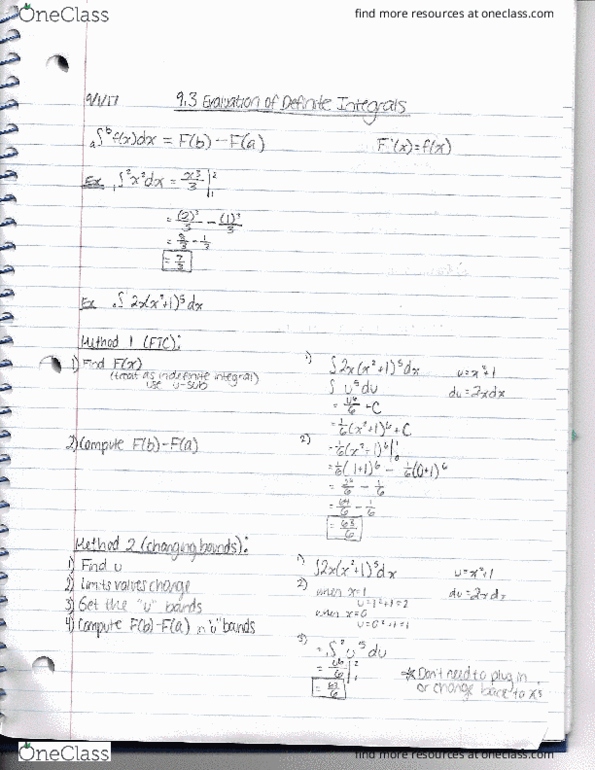 OneClass
find more resources at oneclass.com
9/1/17 9.3 Evaluation of Definite Integrals
a∫^b f(x)dx = F(b) - F(a) F'(x) = f(x)
Ex 1∫^2 x^2 dx = x^3/3 |^2_1
= (2)^3/3 - (1)^3/3
= 8/3 - 1/3
= 7/3
Ex ∫ 2x(x^2+1)^5 dx
Method 1 (FTC):
1) Find F(x)
(treat as indefinite integral)
use u-sub
1) ∫2x(x^2+1)^5 dx u = x^2+1
∫ u^5 du du = 2x dx
= u^6/6 + C
= 1/6(x^2+1)^6 + C
2) Compute F(b) - F(a)
2) = 1/6(x^2+1)^6 |^1_0
= 1/6(1+1)^6 - 1/6(0+1)^6
= 2^6/6 - 1/6
= 64/6 - 1/6
= 63/6
Method 2 (changing bounds):
1) Find u
2) Limits values change
3) Get the "u" bands
4) Compute F(b) - F(a) in "u" bands
1) ∫2x(x^2+1)^5 dx u = x^2+1
2) when x=1 du = 2x dx
u = 1^2+1 = 2
when x=0
u = 0^2+1 = 1
3) = 1∫^2 u^5 du
= u^6/6 |^2_1
= 63/6
* Don't need to plug in
or change back to x's
OneClass
find more resources at oneclass.com